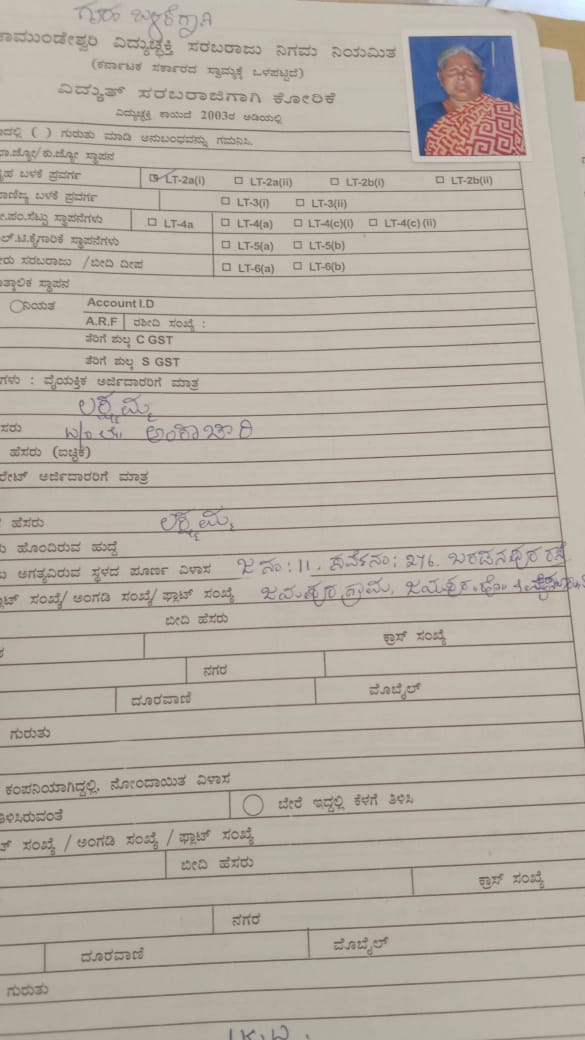 ಗುರು
ಚಾಮುಂಡೇಶ್ವರಿ ವಿದ್ಯುಚ್ಛಕ್ತಿ ಸರಬರಾಜು ನಿಗಮ ನಿಯಮಿತ
(ಕರ್ನಾಟಕ ಸರ್ಕಾರದ ಸ್ವಾಮ್ಯಕ್ಕೆ ಒಳಪಟ್ಟಿದೆ)
ವಿದ್ಯುತ್ ಸರಬರಾಜಿಗಾಗಿ ಕೋರಿಕೆ
ವಿದ್ಯುಚ್ಛಕ್ತಿ ಕಾಯಿದೆ 2003ರ ಅಡಿಯಲ್ಲಿ
ದಲ್ಲಿ ( ) ಗುರುತು ಮಾಡಿ ಅನುಬಂಧವನ್ನು ಗಮನಿಸಿ.
ಸ್ಥಾಪನ
ಬಳಕೆ ಪ್ರವರ್ಗ ☑ LT-2a(i) □ LT-2a(ii) □ LT-2b(i) □ LT-2b(ii)
ಬಳಕೆ ಪ್ರವರ್ಗ □ LT-3(i) □ LT-3(ii)
ಪಂ.ಸೆಟ್ಟು ಸ್ಥಾಪನೆಗಳು □ LT-4a □ LT-4(a) □ LT-4(c)(i) □ LT-4(c)(ii)
ಲ್.ಟಿ.ಕೈಗಾರಿಕೆ ಸ್ಥಾಪನೆಗಳು □ LT-5(a) □ LT-5(b)
ರು ಸರಬರಾಜು /ಬೀದಿ ದೀಪ □ LT-6(a) □ LT-6(b)
ತ್ಕಾಲಿಕ ಸ್ಥಾಪನ
ನಿಯತ Account I.D
A.R.F ರಶೀದಿ ಸಂಖ್ಯೆ :
ತೆರಿಗೆ ಶುಲ್ಕ C GST
ತೆರಿಗೆ ಶುಲ್ಕ S GST
ಗಳು : ವೈಯಕ್ತಿಕ ಅರ್ಜಿದಾರರಿಗೆ ಮಾತ್ರ
ಲಕ್ಷ್ಮಮ್ಮ
ಸರು
ಹೆಸರು (ಐಚ್ಛಿಕ)
ರೇಟ್ ಅರ್ಜಿದಾರರಿಗೆ ಮಾತ್ರ
ಹೆಸರು ಲಕ್ಷ್ಮಮ್ಮ
ಹೊಂದಿರುವ ಹುದ್ದೆ
ಅಗತ್ಯವಿರುವ ಸ್ಥಳದ ಪೂರ್ಣ ವಿಳಾಸ
ಸಂಖ್ಯೆ/ ಅಂಗಡಿ ಸಂಖ್ಯೆ/ ಫ್ಲಾಟ್ ಸಂಖ್ಯೆ
ಬೀದಿ ಹೆಸರು
ಕ್ರಾಸ್ ಸಂಖ್ಯೆ
ನಗರ
ದೂರವಾಣಿ ಮೊಬೈಲ್
ಗುರುತು
ಕಂಪನಿಯಾಗಿದ್ದಲ್ಲಿ, ನೋಂದಾಯಿತ ವಿಳಾಸ
ತಿಳಿಸಿರುವಂತೆ ಬೇರೆ ಇದ್ದಲ್ಲಿ ಕೆಳಗೆ ತಿಳಿಸಿ
ಸಂಖ್ಯೆ / ಅಂಗಡಿ ಸಂಖ್ಯೆ / ಫ್ಲಾಟ್ ಸಂಖ್ಯೆ
ಬೀದಿ ಹೆಸರು
ಕ್ರಾಸ್ ಸಂಖ್ಯೆ
ನಗರ
ದೂರವಾಣಿ ಮೊಬೈಲ್
ಗುರುತು